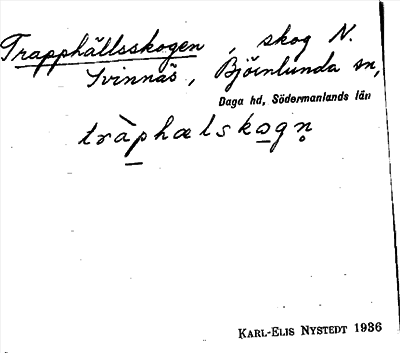 Trapphällsskogen, skog N.
Svinnäs, Björnlunda sn,
Daga hd, Södermanlands län
tràphælskogn̥
KARL-ELIS NYSTEDT 1936